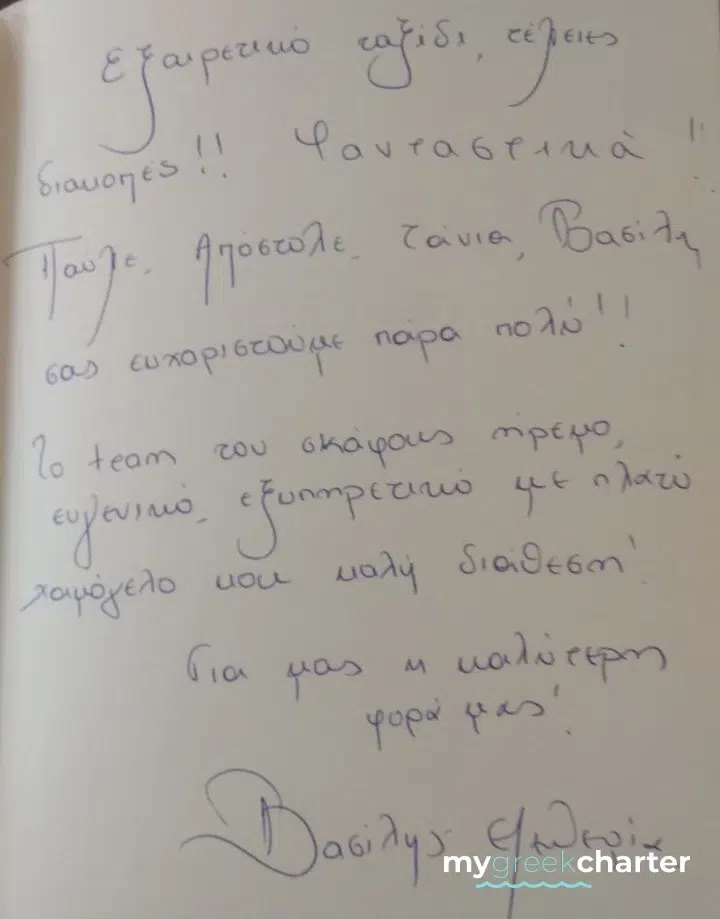 Εξαιρετικό ταξίδι, τέλειες
διακοπές!! Φανταστικά!!
Παύλε, Απόστολε, Τάνια, Βασίλη
σας ευχαριστούμε πάρα πολύ!!
Το team του σκάφους ήρεμο,
ευγενικό, εξυπηρετικό με πλατύ
χαμόγελο και καλή διάθεση!
Για μας η καλύτερη
φορά μας!
Βασίλης
mygreekcharter